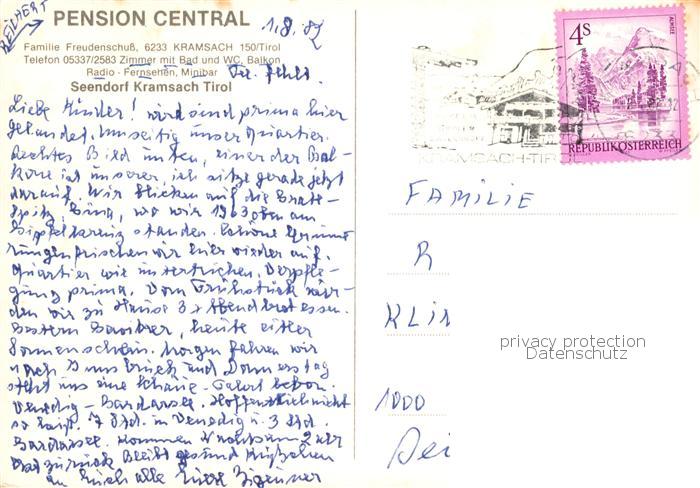 REICHERT
PENSION CENTRAL
1.8.82
Familie Freudenschuß, 6233 KRAMSACH 150/Tirol
Telefon 05337/2583 Zimmer mit Bad und WC, Balkon
Radio - Fernsehen, Minibar
Seendorf Kramsach Tirol
Liebe Kinder! wir sind prima hier
gelandet. Umseitig unser Quartier.
Rechtes Bild unten, einer der Bal-
kone ist unserer, ich sitze gerade jetzt
darauf. Wir blicken auf die
wo wir 1963 oben am
Gipfelkreuz standen. Schöne Erinne
rungen frischen wir hier wieder auf.
Quartier wie Verpfle-
gung prima. Vom Frühstück wür-
den wir zu Hause 3 x Abendbrot essen.
Gestern heute eitler
Sonnenschein. Morgen fahren wir
nach Innsbruck und Donnerstag
steht uns eine Fahrt bevor.
Venedig - Gardasee. Hoffentlich nicht
so heiß. 7 Std. in Venedig u. 3 Std.
Gardasee. Kommen Nachts um 2 Uhr
zurück. Bleibt gesund
an Euch alle Eure Zigeuner
4s
ALMSEE
REPUBLIK ÖSTERREICH
KRAMSACH-TIR
FAMILIE
R
KLIN
privacy protection
Datenschutz
1000